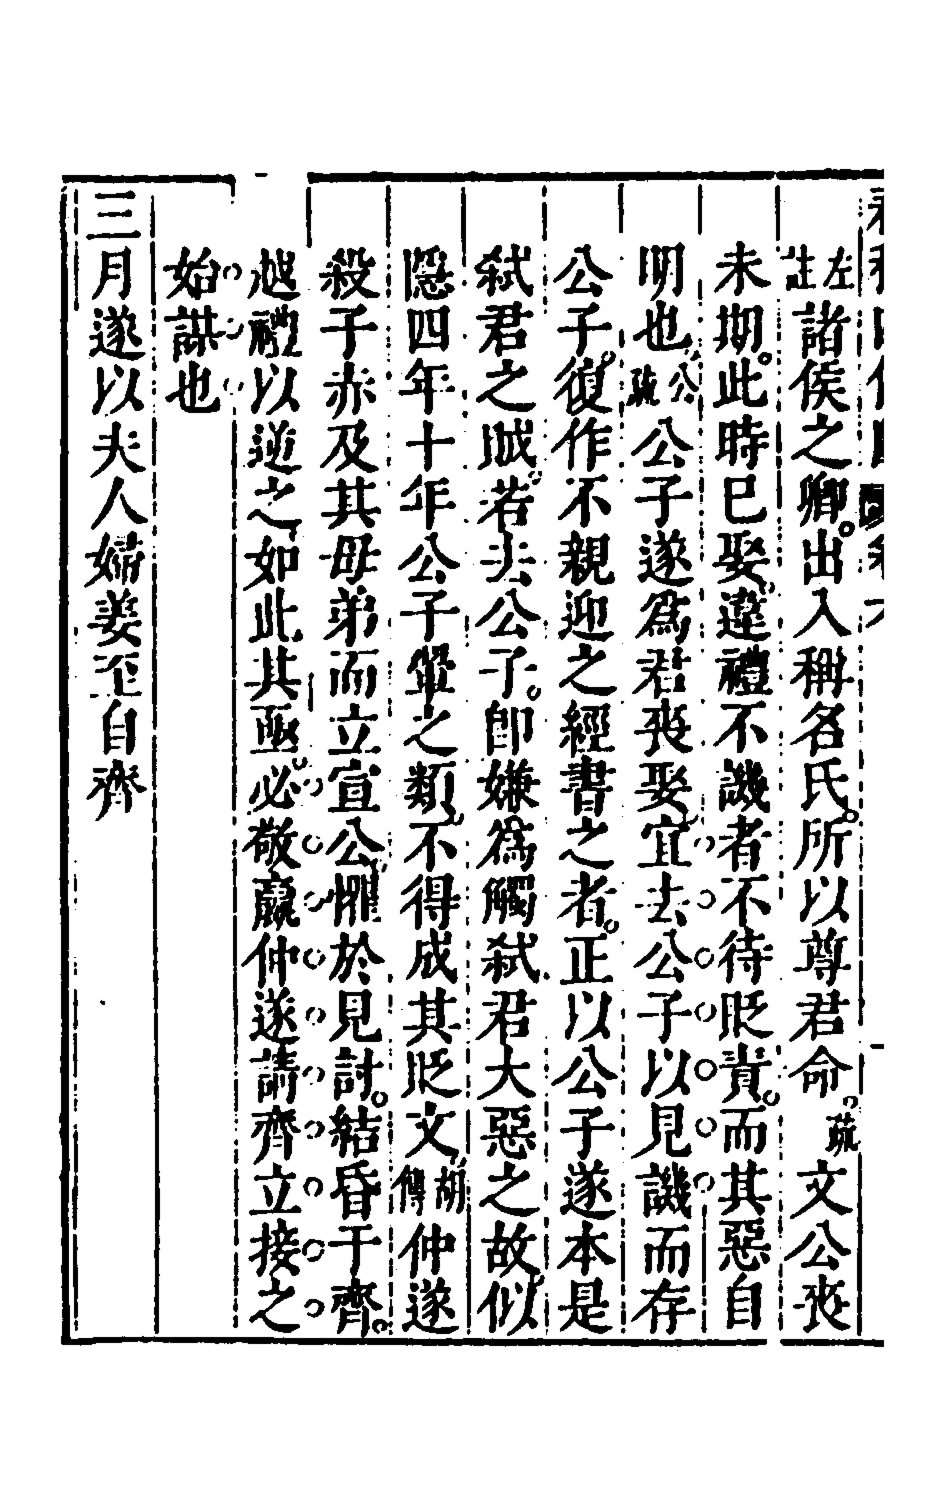 左註諸侯之卿出入稱名氏所以尊君命疏文公喪
未期此時已娶違禮不譏者不待貶責而其惡自
明也公疏公子遂爲君喪娶宜去公子以見譏而存
公子復作不親迎之經書之者正以公子遂本是
弑君之賊若去公子卽嫌爲觸弑君大惡之故似
隱四年十年公子翬之類不得成其貶文胡傳仲遂
殺子赤及其母弟而立宣公懼於見討結昏于齊
越禮以逆之如此其亟必敬嬴仲遂請齊立接之
始謀也
三月遂以夫人婦姜至自齊